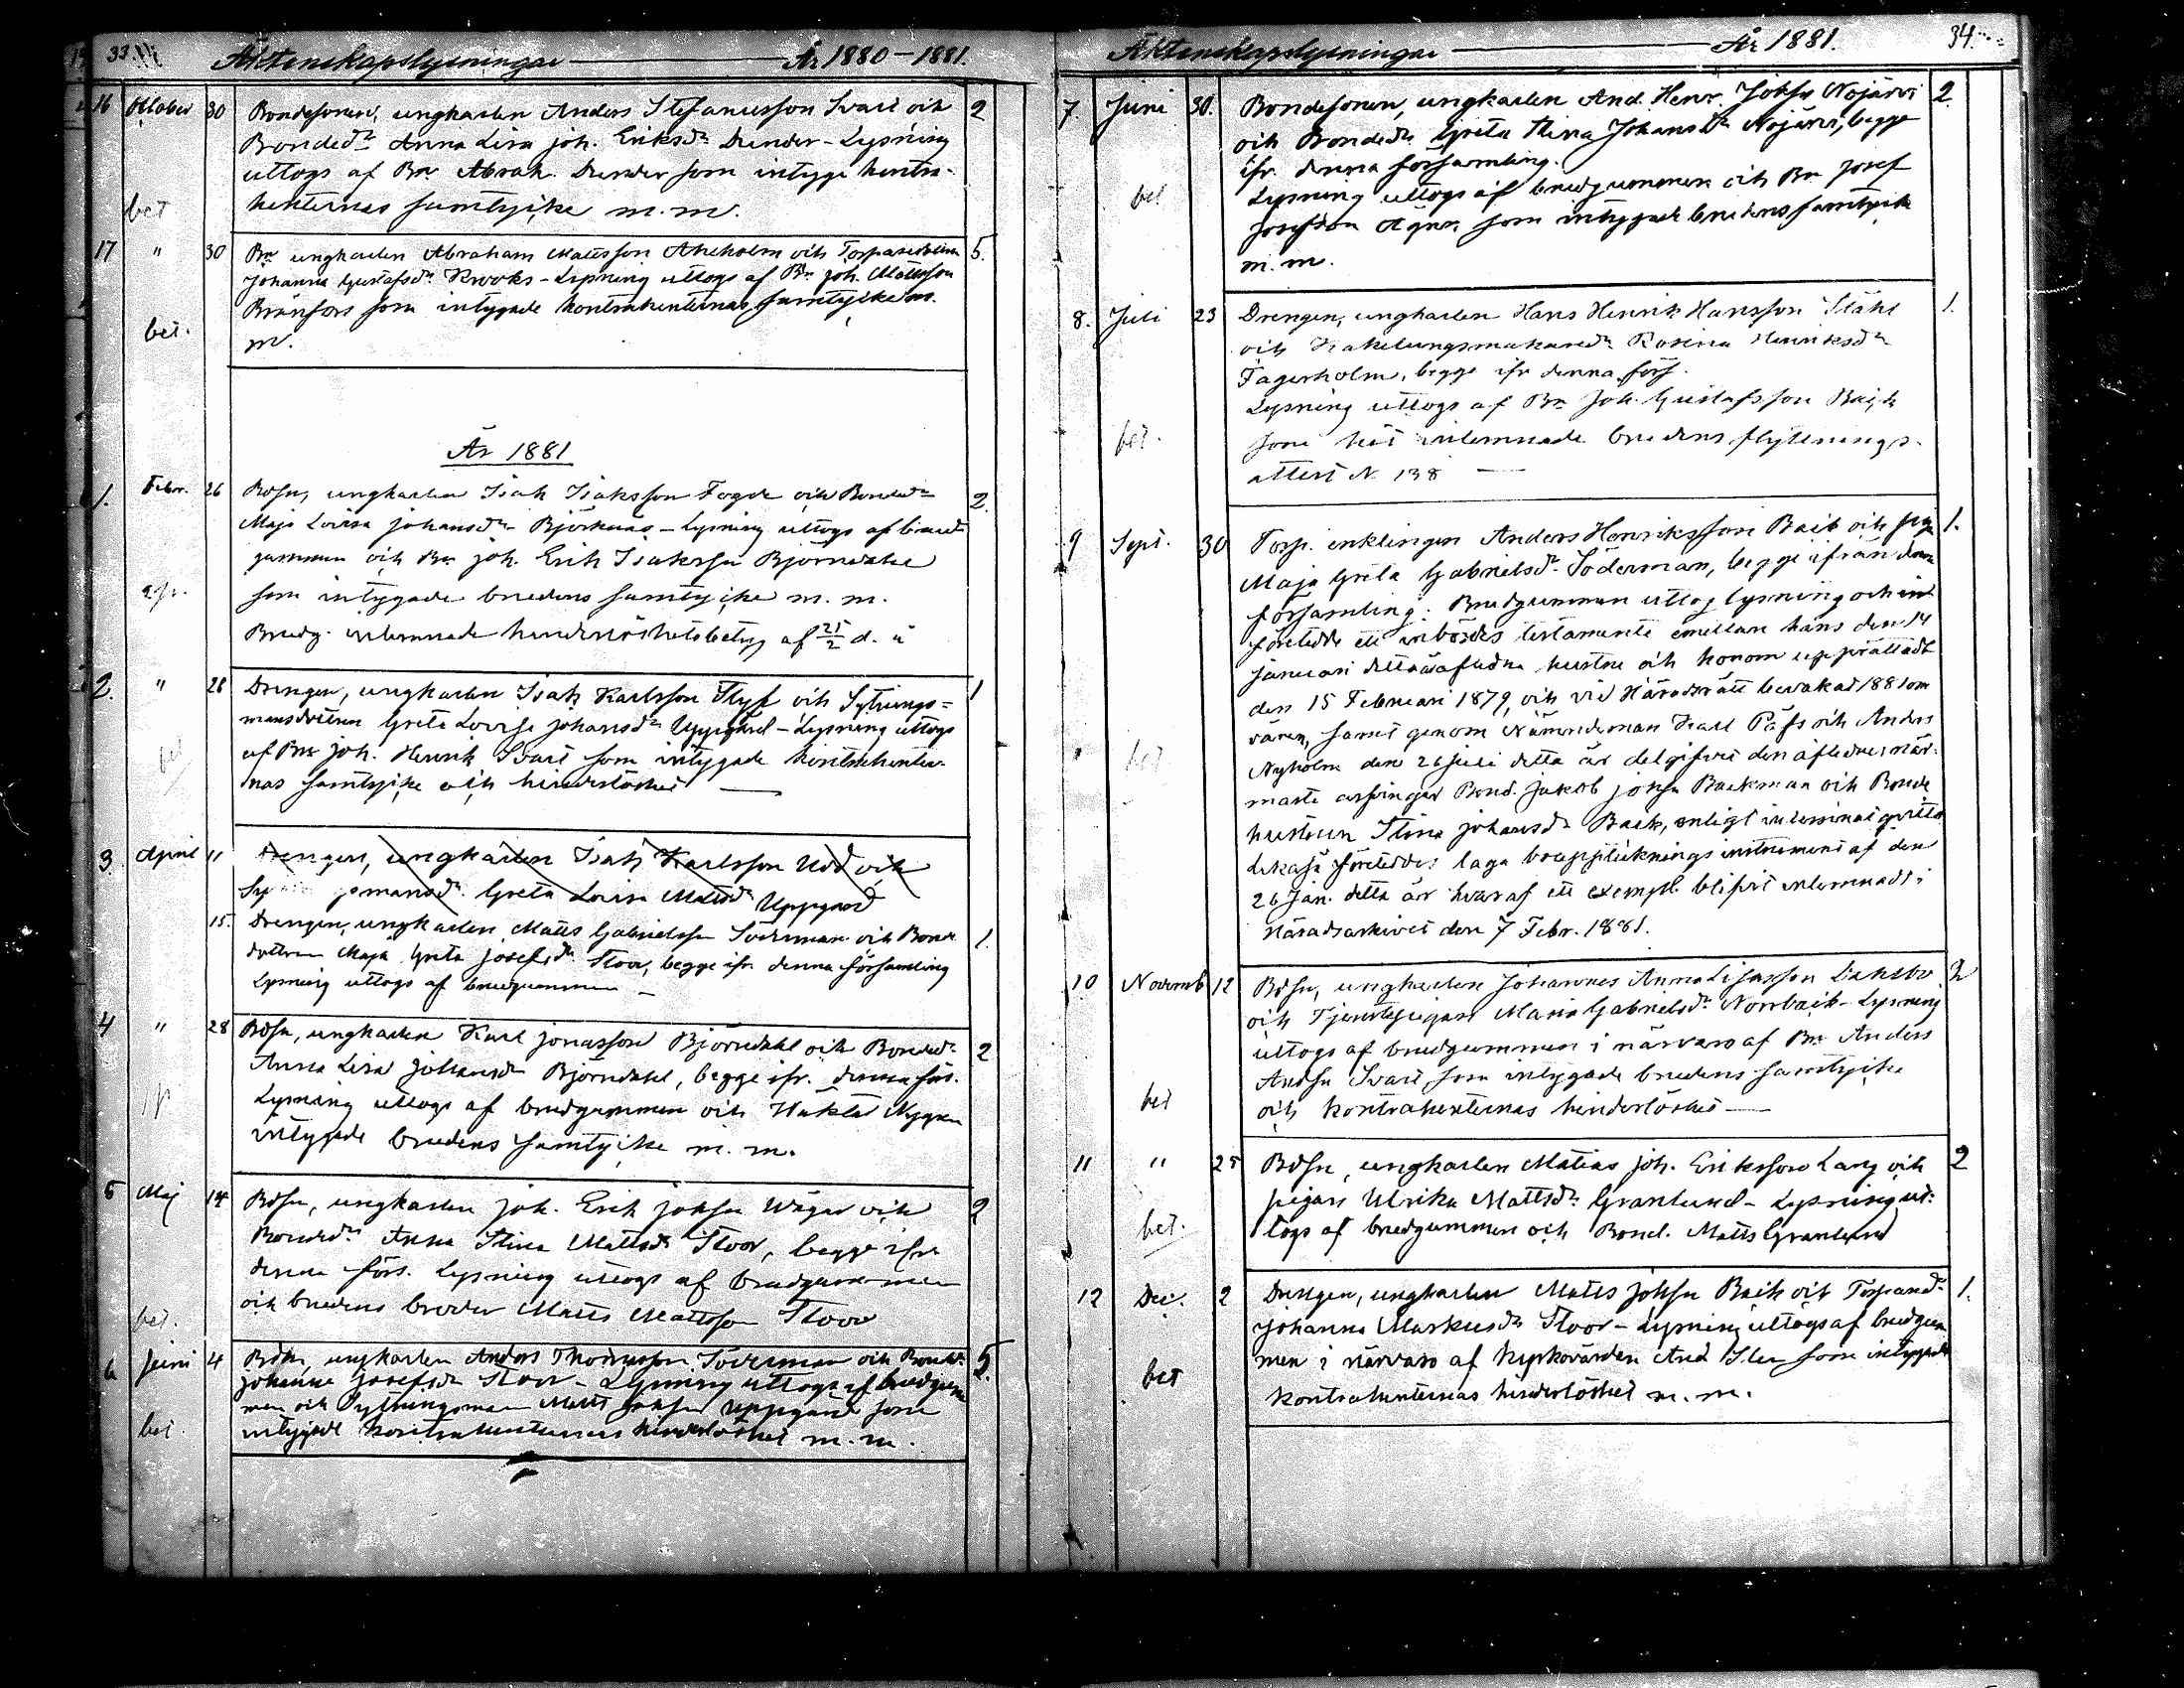 33.
Äktenskapslysningar År 1880-1881.
16 Oktober 30 Bondesonen, ungkarlen Anders Stefanusson Svart och 2
Bondedr Anna Lisa Joh. Eriksdr Dunder - Lysning
uttogs af Bn Abrah. Dunder som intyga kontra-
henternas samtycke m.m.
bet
17 " 30 Bn ungkarlen Abraham Mattsson och Torparedottren 5.
Johanna Gustafsdr Krooks - Lysning uttogs af Bn Joh. Mattsson
Brännfors som intygade kontrahenternas samtycke m.
m.
bet.
År 1881
1. Febr. 26 Bdsn, ungkarlen Isak Isaksson Fogde och Bondedr 2.
Maja Lovisa Johansdr Björknäs - Lysning uttogs af brud-
gummen och Bn Joh. Erik Isaksson Björndahl
som intygade brudens samtycke m. m.
Brudg. inlemnade hinderlöshetsbetyg af 25/2 d. å
2. " 28 Drengen, ungkarlen Isak Karlsson och Sytnings= 1
mansdottren Greta Lovisa Johansdr Uppgård - Lysning uttogs
af Bn Joh. Henrik Svart som intygade kontrahenter-
nas samtycke och hinderlöshet
bet
3. April 11 Drengen, ungkarlen Isak Karlsson och
Greta Lovisa Mattsdr Uppgård
15. Drengen, ungkarlen Matts Gabrielsson Söderman och Bonde- 1.
dottren Maja Greta Josefsdr Stoor, begge ifr. denna församling
Lysning uttogs af brudgummen
4 " 28 Bdsn, ungkarlen Karl Jonasson Björndahl och Bondedr 2
Anna Lisa Johansdr Björndahl, begge ifr. denna förs.
Lysning uttogs af brudgummen och
intygade brudens samtycke m. m.
5 Maj 14 Bdsn, ungkarlen Joh. Erik Johsn och 2
Bondedr Anna Stina Mattsdr Stoor, begge ifr.
denna förs. Lysning uttogs af brudgummen
och brudens broder Matts Mattsson Stoor
bet.
6 Juni 4 Bdsn, ungkarlen Anders Thomasson Söderman och Bondedr 5.
Johanna Josefsdr Stoor - Lysning uttogs af brudgum-
men och Sytningsman Matts Johsn Uppgård som
intygade kontrahenternas hinderlöshet m. m.
bet.
34.
Äktenskapslysningar År 1881.
7. Juni 30. Bondesonen, ungkarlen And. Henr. Johsn Nöjärvi 2.
och Bondedr Greta Stina Johansdr Nöjärvi, begge
ifr. denna församling.
Lysning uttogs af brudgummen och Bn Josef
Josefsson som intygade brudens samtycke
m. m.
bet
8. Juli 23 Drengen, ungkarlen Hans Henrik Hansson Ståhl 1.
och Kakelungsmakaredr Rosina Henriksdr
Fagerholm, begge ifr denna förs.
Lysning uttogs af Bn Joh. Gustafsson
som inlemnade brudens flyttnings-
attest N. 138
bet.
9 Sept. 30 Torp. enklingen Anders Henriksson och 1.
Maja Greta Gabrielsdr Söderman, begge ifrån denna
församling. Brudgummen uttog lysning och
företedde ett inbördes testamente emellan hans den 14
Januari detta år aflidna hustru och honom upprättadt
den 15 Februari 1879, och vid Häradsrätt bevakad 1881 om
våren, samt genom Nämndeman Karl och Anders
Nyholm den 26 Juli detta år delgifvet den aflidnes när-
maste arfvingar Bond. Jakob Johsn Backman och Bonde
hustrun Stina Johansdr Back, enligt
företeddes laga bouppteckningsinstrument af den
26 Jan. detta år hvaraf ett exempl. blifvit inlemnadt i
Häradsarkivet den 7 Febr. 1881.
bet
10 Novemb 12 Bdsn, ungkarlen Johannes Dahlbo 2
och Tjenstepigan Maria Gabrielsdr Norrback - Lysning
uttogs af brudgummen i närvaro af Bn Anders
Andsn Svart, som intygade brudens samtycke
och kontrahenternas hinderlöshet
bet
11 " 25 Bdsn, ungkarlen Matias Joh. Eriksson Lang och 2
pigan Ulrika Mattsdr Granlund - Lysning ut-
togs af brudgummen och Bond. Matts Granlund
bet.
12 Dec. 2 Drengen, ungkarlen Matts Johsn och Torparedr 1.
Johanna Markusdr Stoor - Lysning uttogs af brudgum
men i närvaro af kyrkovärden And som intygade
kontrahenternas hinderlöshet m. m.
bet